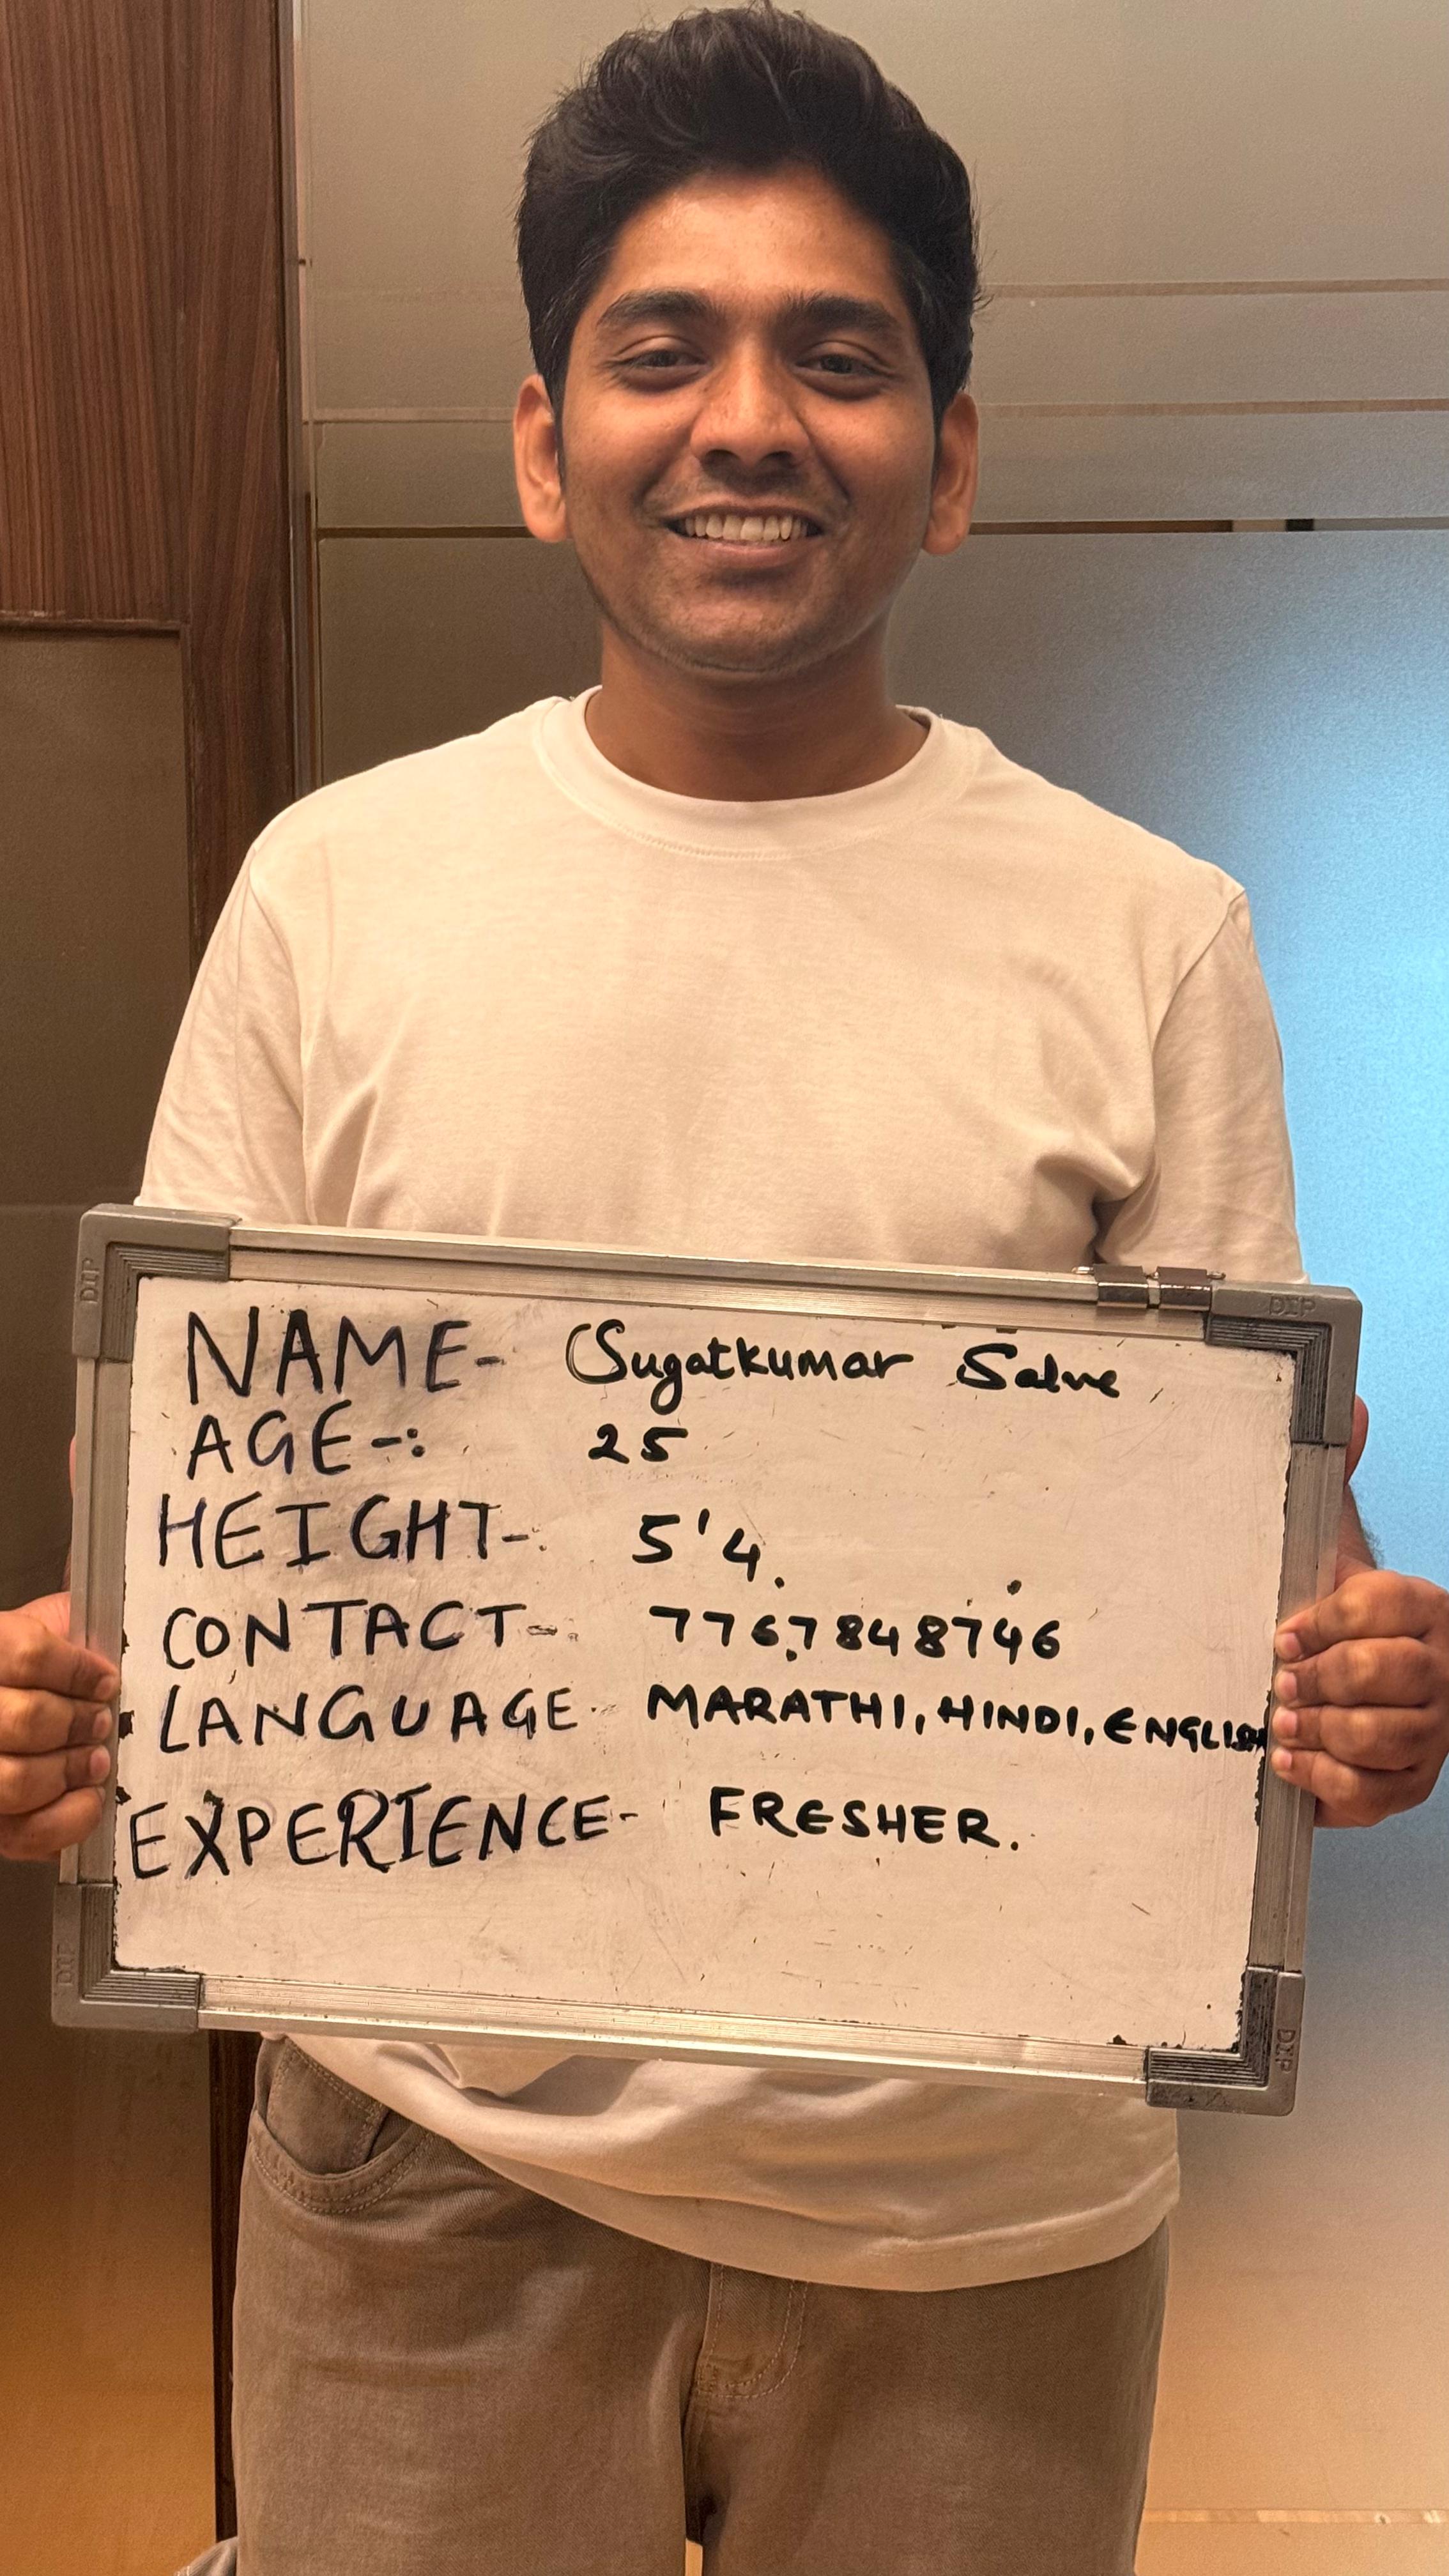 NAME- Sugatkumar Salve
AGE-: 25
HEIGHT- 5'4.
CONTACT- 7767848746
LANGUAGE- MARATHI, HINDI, ENGLISH
EXPERIENCE- FRESHER.
DIP
DIP
DIP
DIP